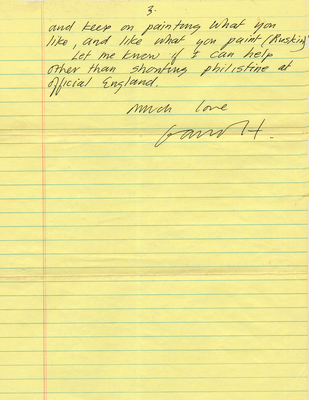 3.
and keep on painting what you
like, and like what you paint (Ruskin)
Let me know if I can help
other than shouting philistine at
official England.
much love
David H.